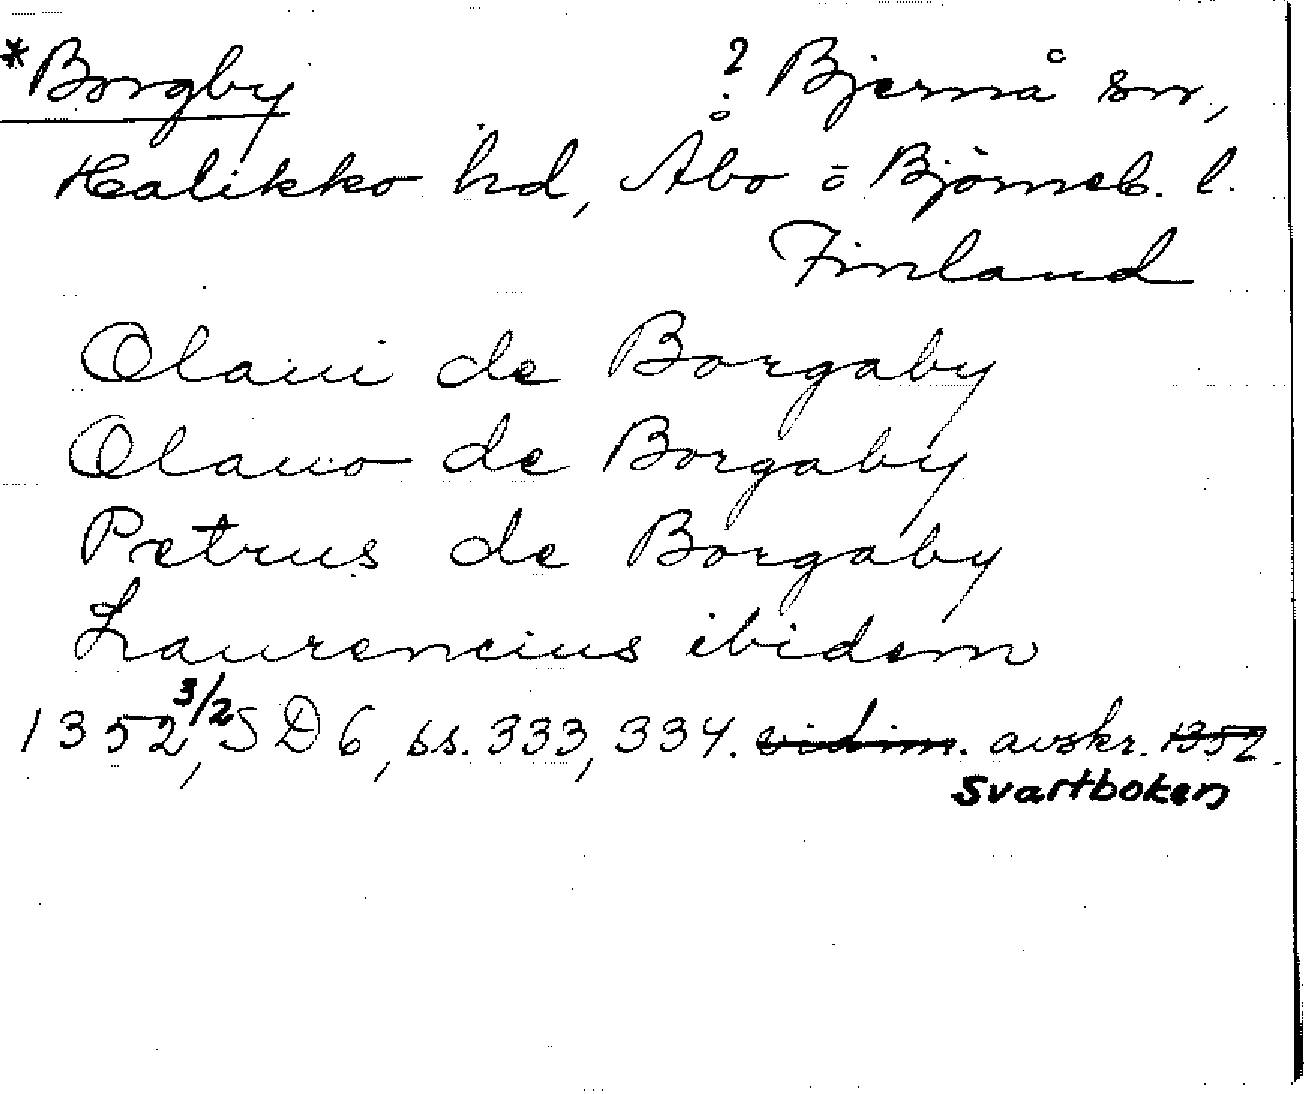 *Borgby ? Bjernå sn,
Halikko hd, Åbo o Björneb. l.
Finland
Olaui de Borgaby
Olauo de Borgaby
Petrus de Borgaby
Laurencius ibidem
1352 3/2, SD 6, ss. 333, 334. vidim. avskr. 1352.
Svartboken